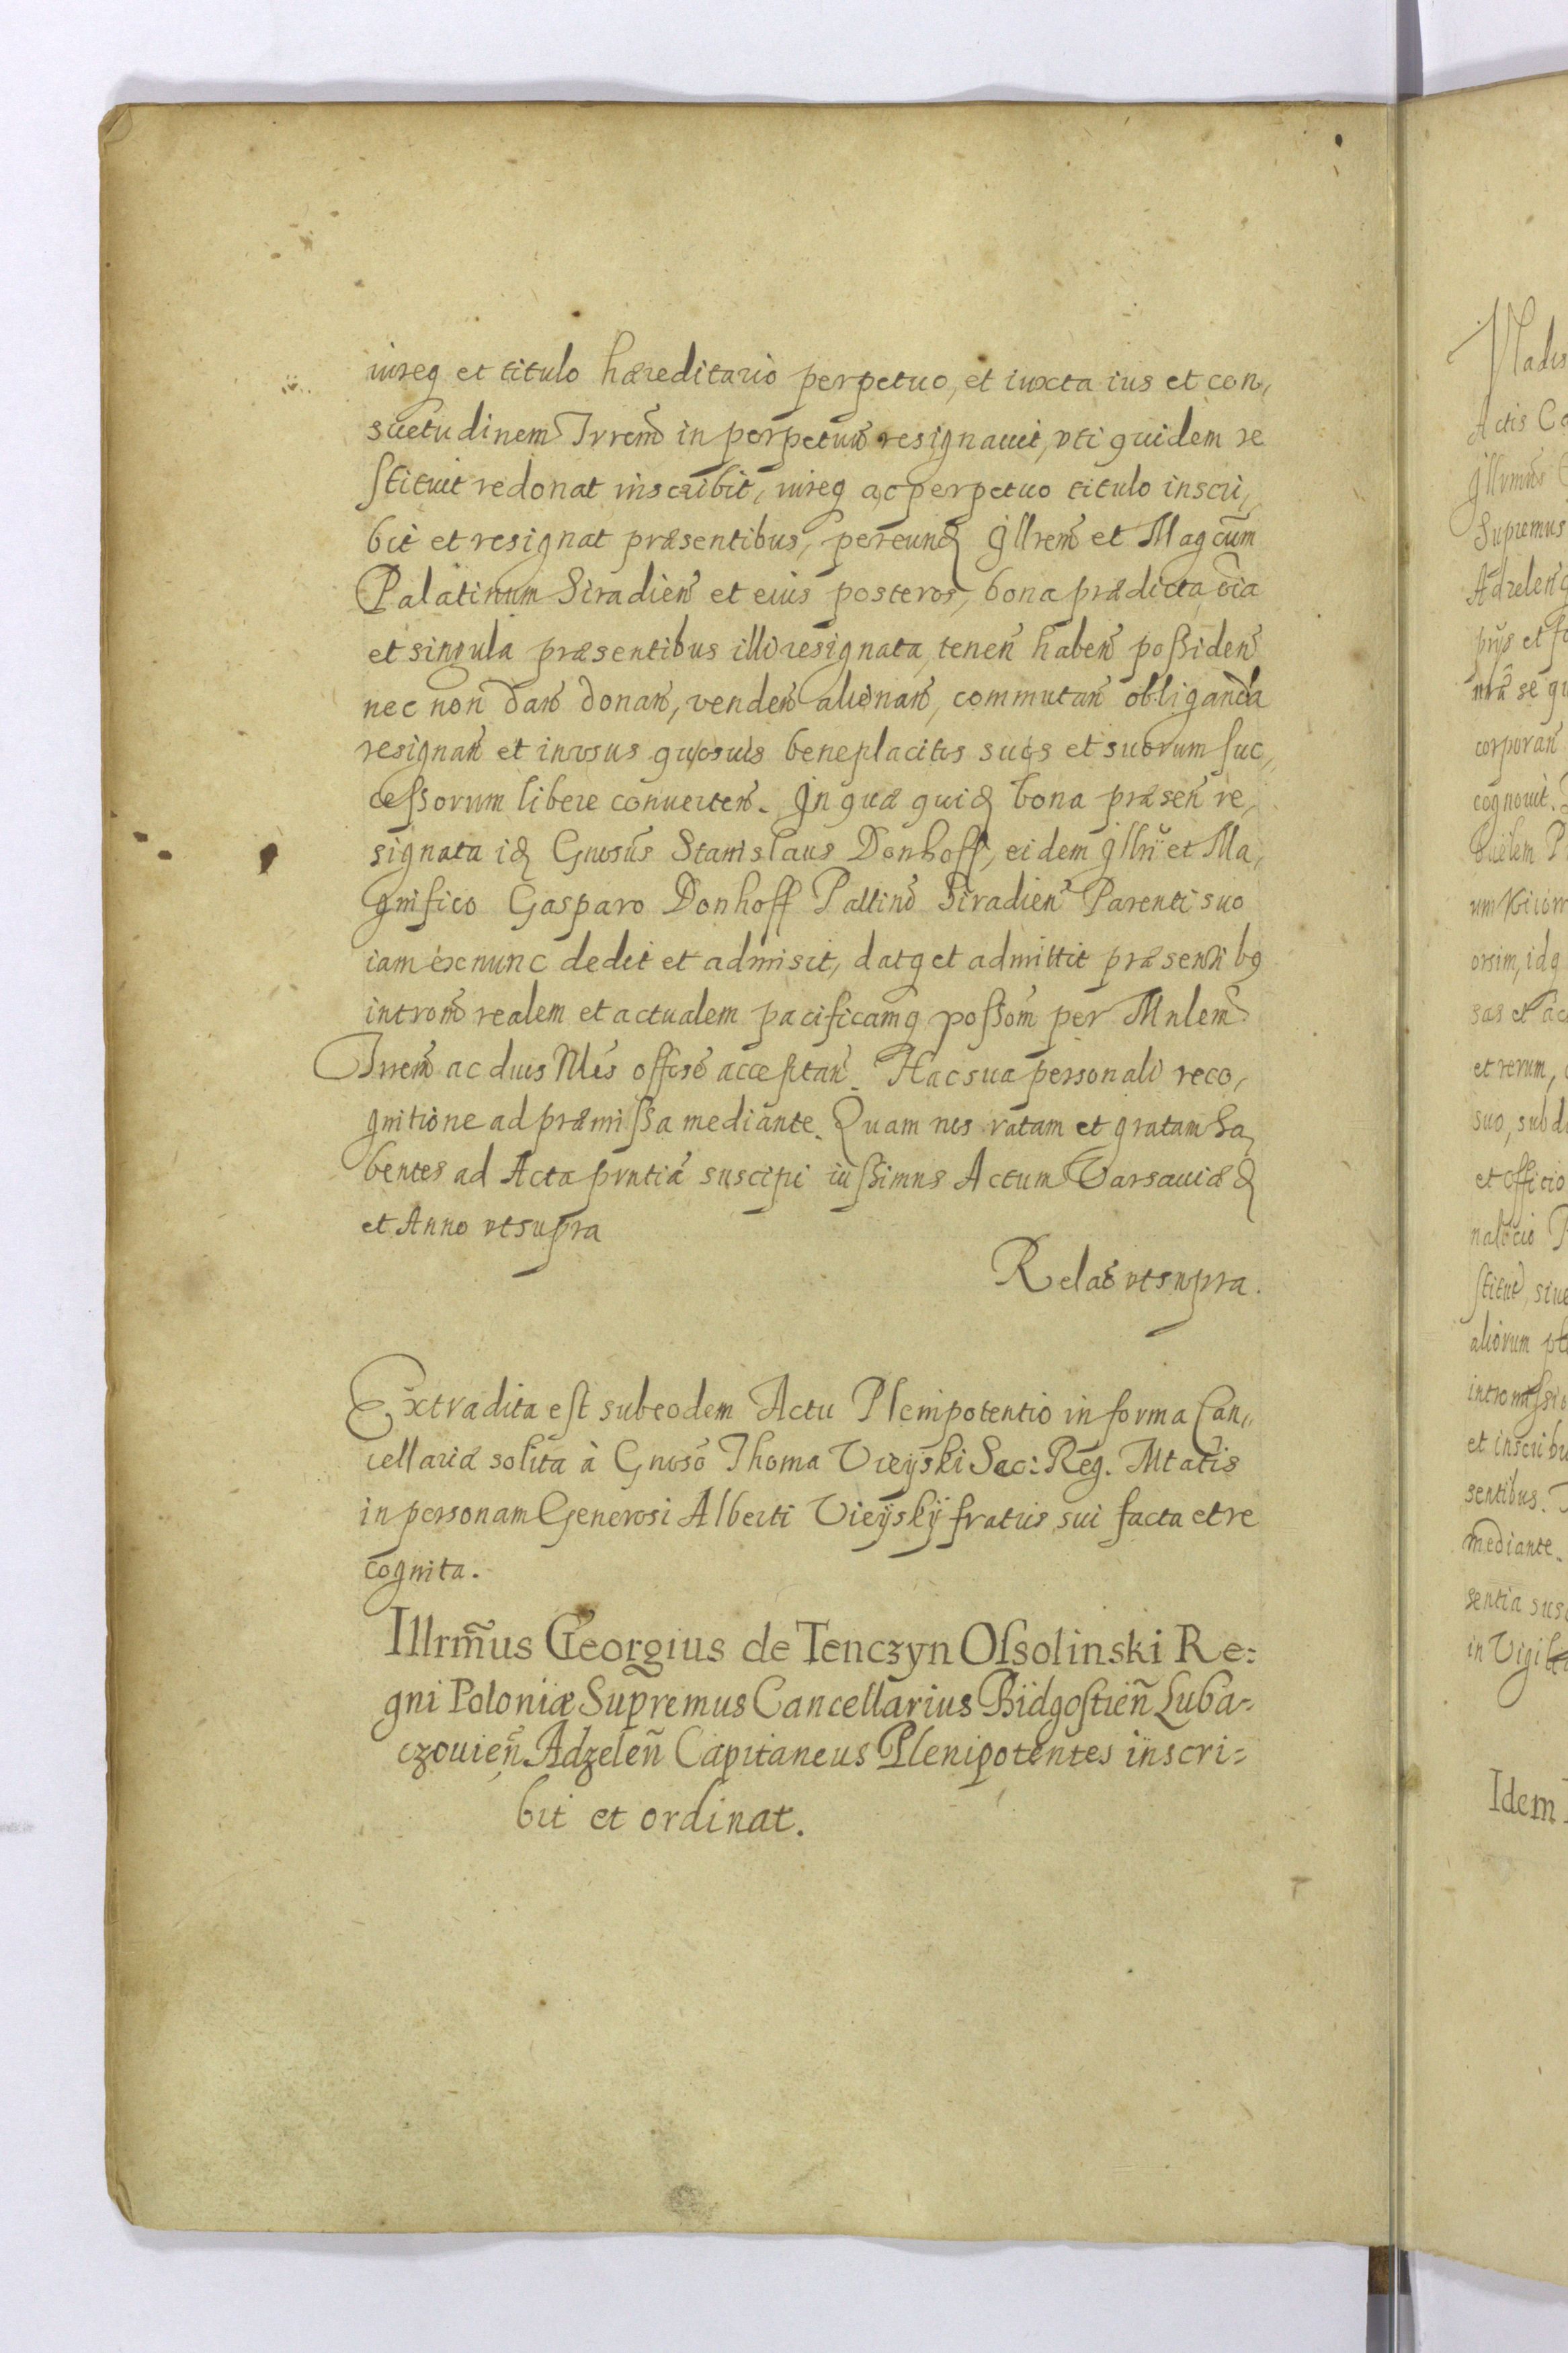 iureq et titulo hæreditario perpetuo, et iuxta ius et con,
suetudinem Trrem̃ in perpetuum̃ resignauit, vti quidem re
stituit redonat inscribit, iureq ac perpetuo titulo inscri,
bit et resignat præsentibus, per eund̃ Illrem̃ et Magcum̃
Palatinum Siradien̄ et eius posteros, bona prædicta oĩa
et singula præsentibus illi resignata, tenen̄ haben̄ possiden̄
nec non dan̄ donan̄, venden̄ alienan̄, commutan̄ obliganda
resignan̄ et in vsus quosuis beneplacitos suos et suorum suc,
cessorum libere conuerten̄. In quæ quid̃ bona præsen̄ re,
signata id̃ Gnosus̃ Stanislaus Donhoff, eidem Illri et Ma,
gnifico Gasparo Donhoff Pallino̅ Siradien̄ Parenti suo
iam ex nunc dedit et admisit, datq et admittit præsentibq
introm̃ realem et actualem pacificamq possom̃ per Mnlem̃
Trrem̃ ac duos Nles̃ offise̅ acceptan̄. Hac sua personali reco,
gnitione ad præmissa mediante. Quam nos ratam et gratam ha,
bentes ad Acta pnntia suscipi iussimus Actum Varsauiæ d̃
et Anno vt supra
Relao̅ vt supra.
Extradita est sub eodem Actu Plenipotentio in forma Can,,
cellariæ solita à Gnoso̅ Thoma Vieÿski Sac: Reg. Mtatis
in personam Generosi Alberti Vieÿskÿ fratris sui facta et re
cognita.
Illrm̃us Georgius de Tenczyn Ossolinski Re=
gni Poloniæ Supremus Cancellarius Bidgostien̄ Luba-
czouien̄ Adzelen̄ Capitaneus Plenipotentes inscri=
bit et ordinat.
Actis Co
Supremus
corporan̄
et rerum,
et officio
aliorum
sentibus.
mediante.
Idem